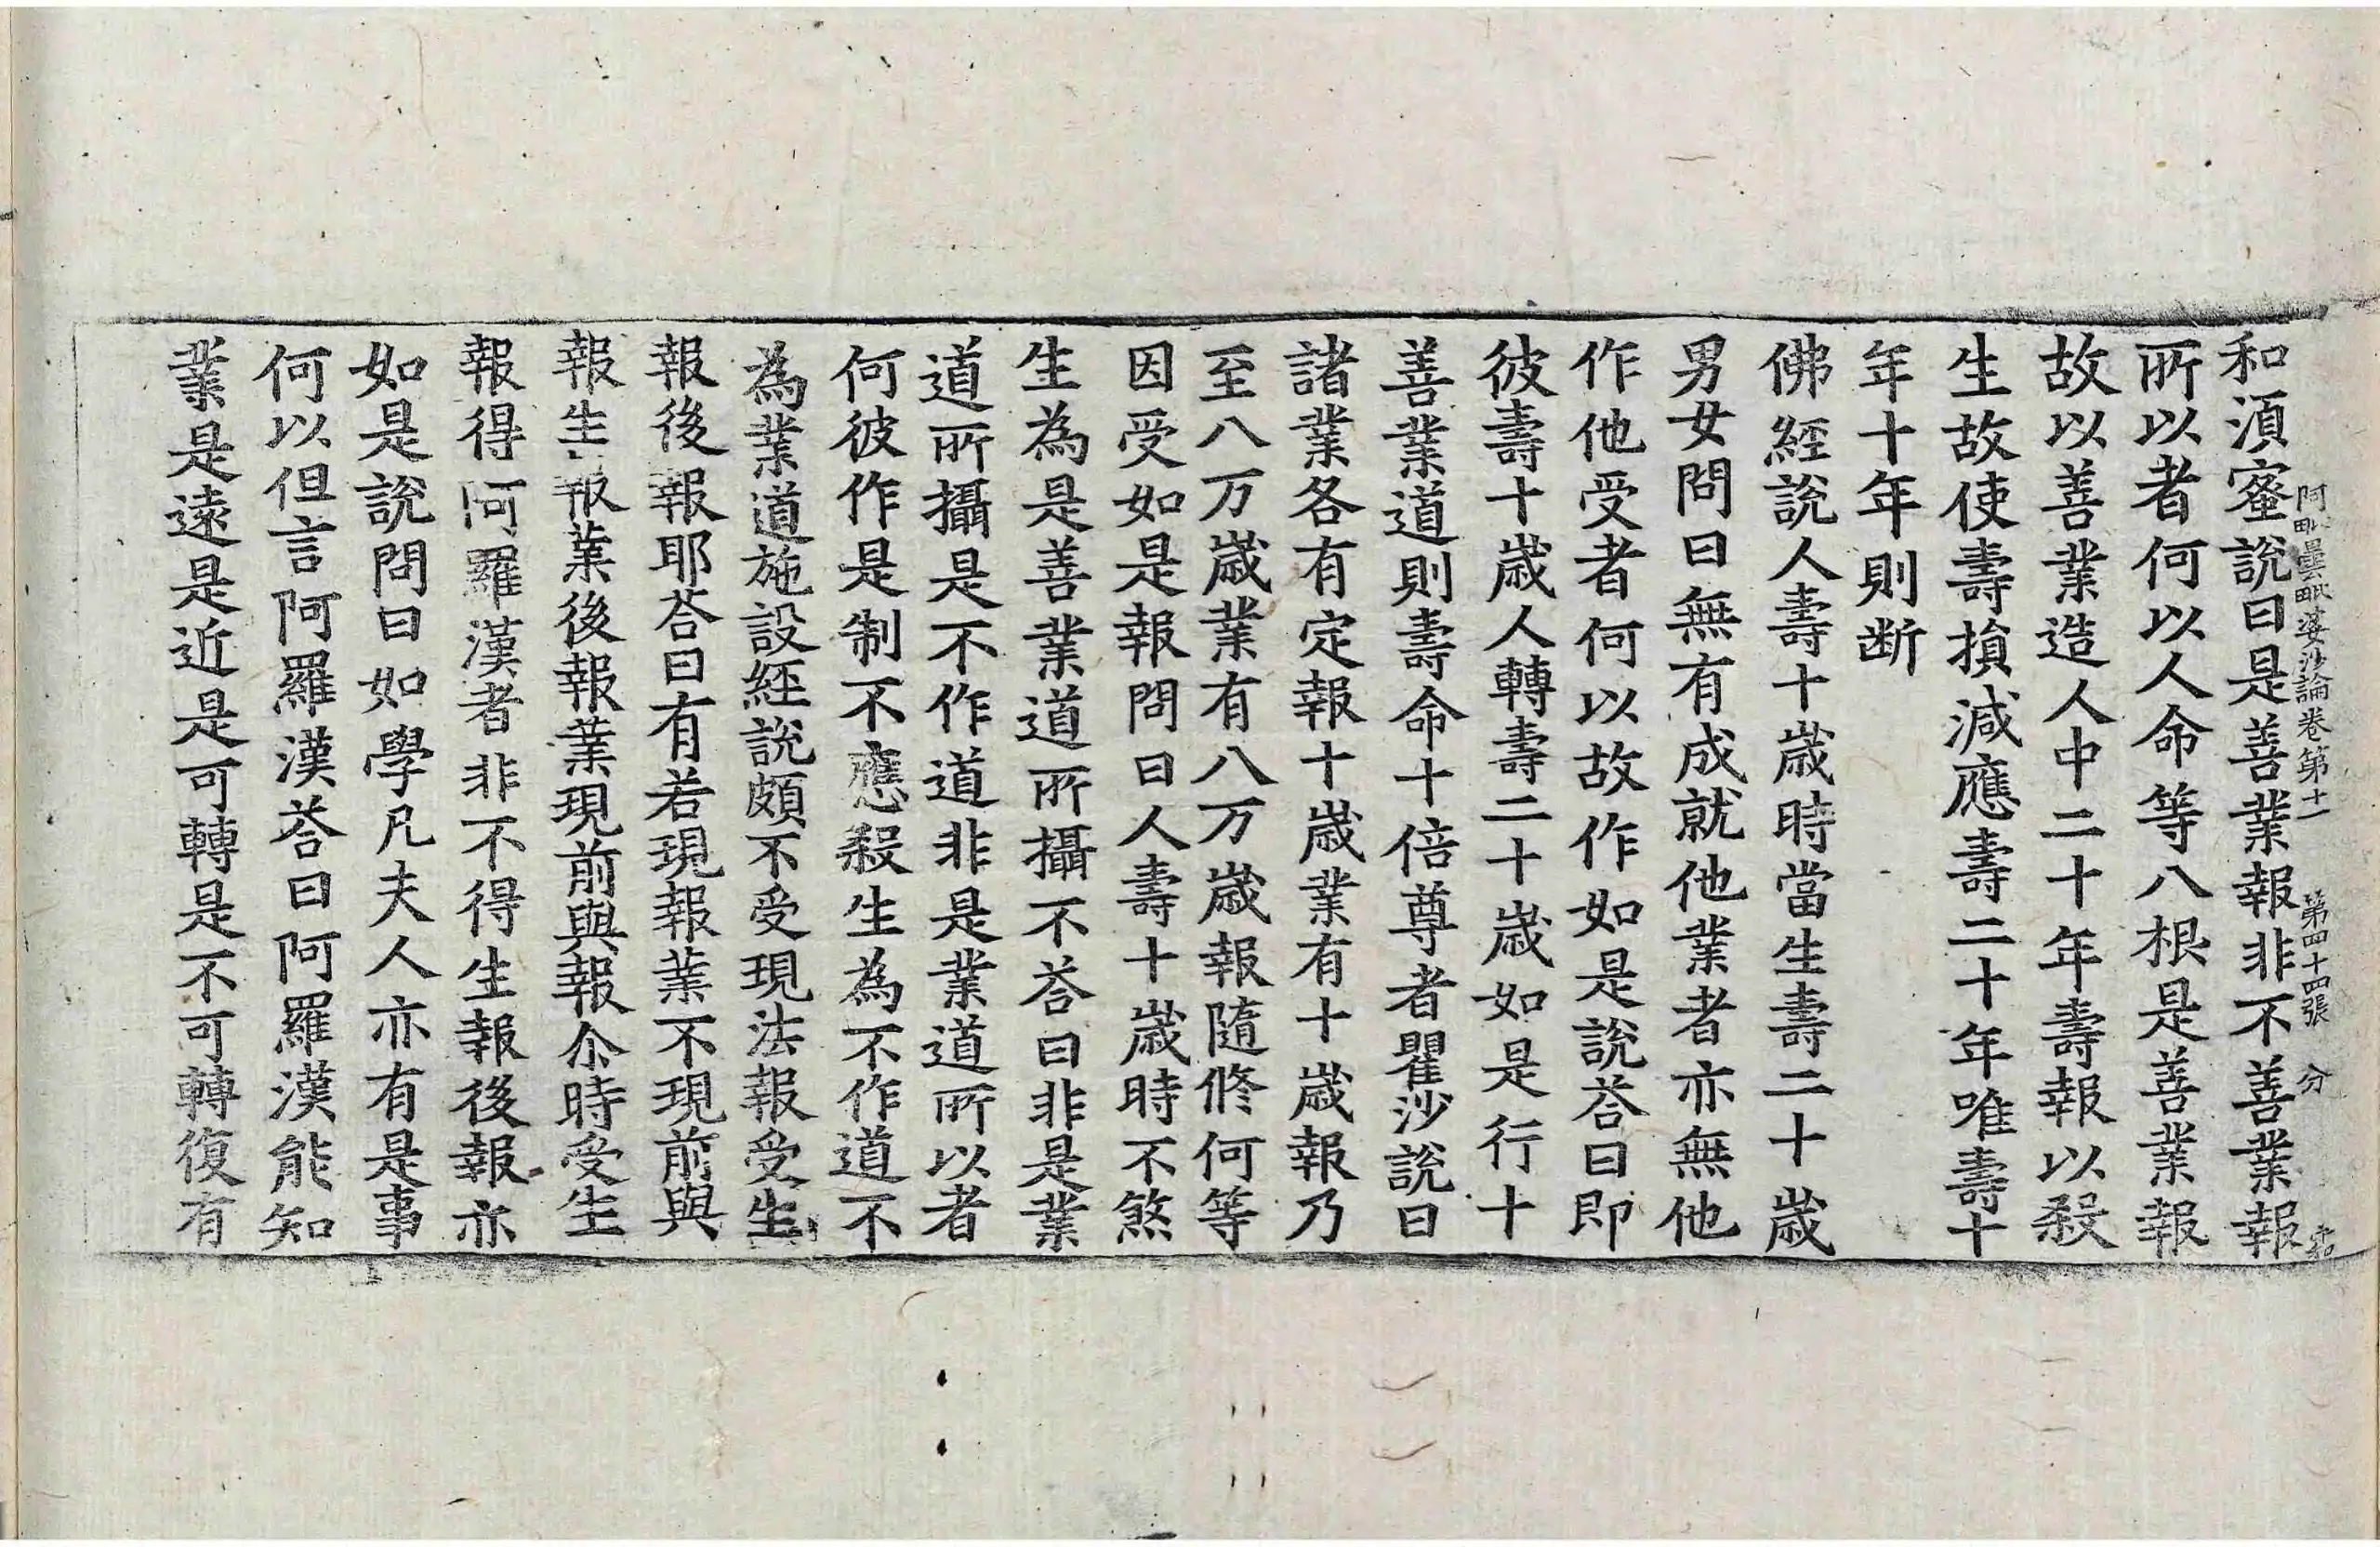 阿毗曇毗婆沙論卷第十一 第四十四張 分
和湏蜜說曰是善業報非不善業報
所以者何以人命等八根是善業報
故以善業造人中二十年壽報以殺
生故使壽損減應壽二十年唯壽十
年十年則断
佛經說人壽十歲時當生壽二十歲
男女問曰無有成就他業者亦無他
作他受者何以故作如是說荅曰即
彼壽十歲人轉壽二十歲如是行十
善業道則壽命十倍尊者瞿沙說曰
諸業各有定報十歲業有十歲報乃
至八万歲業有八万歲報隨修何等
因受如是報問曰人壽十歲時不煞
生為是善業道所攝不荅曰非是業
道所攝是不作道非是業道所以者
何彼作是制不應殺生為不作道不
為業道施設經說頗不受現法報受生
報後報耶荅曰有若現報業不現前與
報生報業後報業現前與報尒時受生
報得阿羅漢者非不得生報後報亦
如是說問曰如學凡夫人亦有是事
何以但言阿羅漢荅曰阿羅漢能知
業是遠是近是可轉是不可轉復有